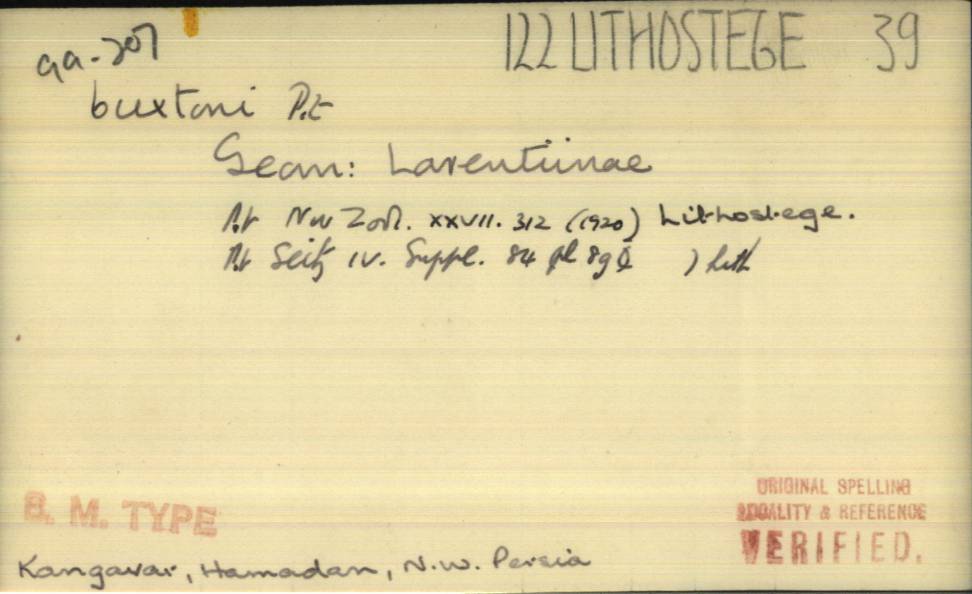 122 LITHOSTEGE 39
99-207
buxtoni Pt
Geom: Larentiinae
Pt Nov Zool. XXVII. 312 (1920) Lithostege.
Pt Seitz IV. Suppl. 84 pl 8g ) Lith
B. M. TYPE
ORIGINAL SPELLING
LOCALITY & REFERENCE
VERIFIED.
Kangavar, Hamadan, N.W. Persia